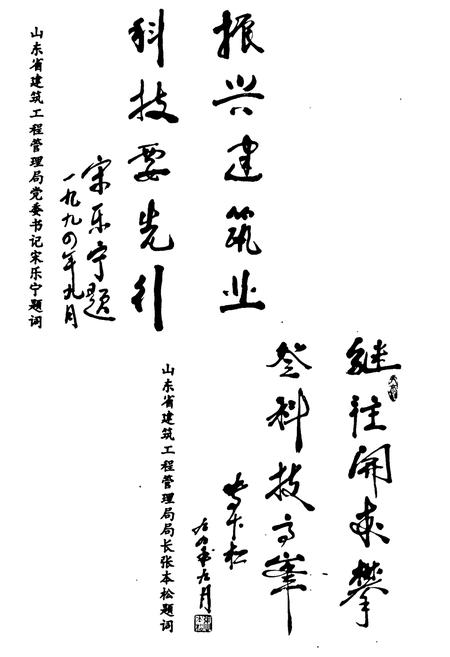 振兴建筑业
科技要先行
宋乐宁题
一九九四年九月
山东省建筑工程管理局党委书记宋乐宁题词
继往开来攀
登科技高峰
张本松
九四年九月
山东省建筑工程管理局局长张本松题词